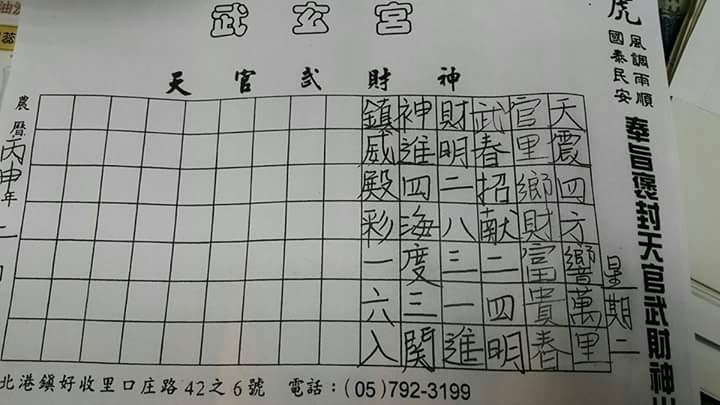 武玄宮
天官武財神
虎
風調雨順
國泰民安
奉旨褒封天官武財神
星期二
天震四方響萬里
官里鄉財富貴春
武春招献二四明
財明二八三一進
神進四海度三関
鎮威殿彩一六入
農曆丙申年二
北港鎮好收里口庄路42之6號 電話:(05)792-3199